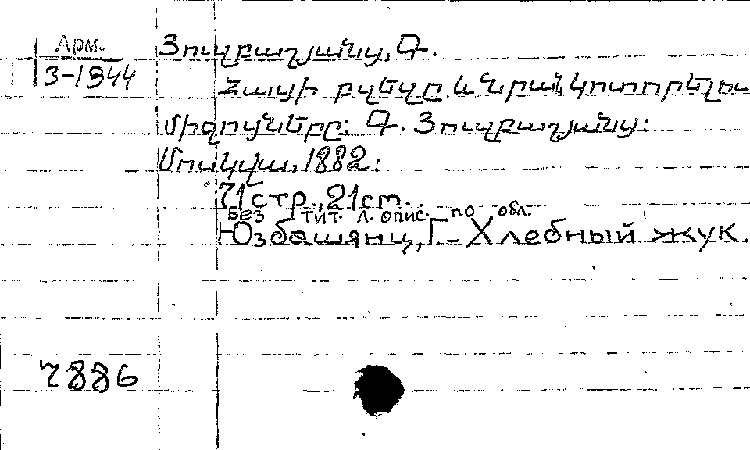 Арм.
3-1844
Յուզբաշյանց, Գ.
Հացի բզեզը և նրան կոտորելու
միջոցները: Գ. Յուզբաշյանց:
Մոսկվա, 1882:
71стр., 21см.
без тит. л. опис. по обл.
Юзбашянц, Г. - Хлебный жук.
7886